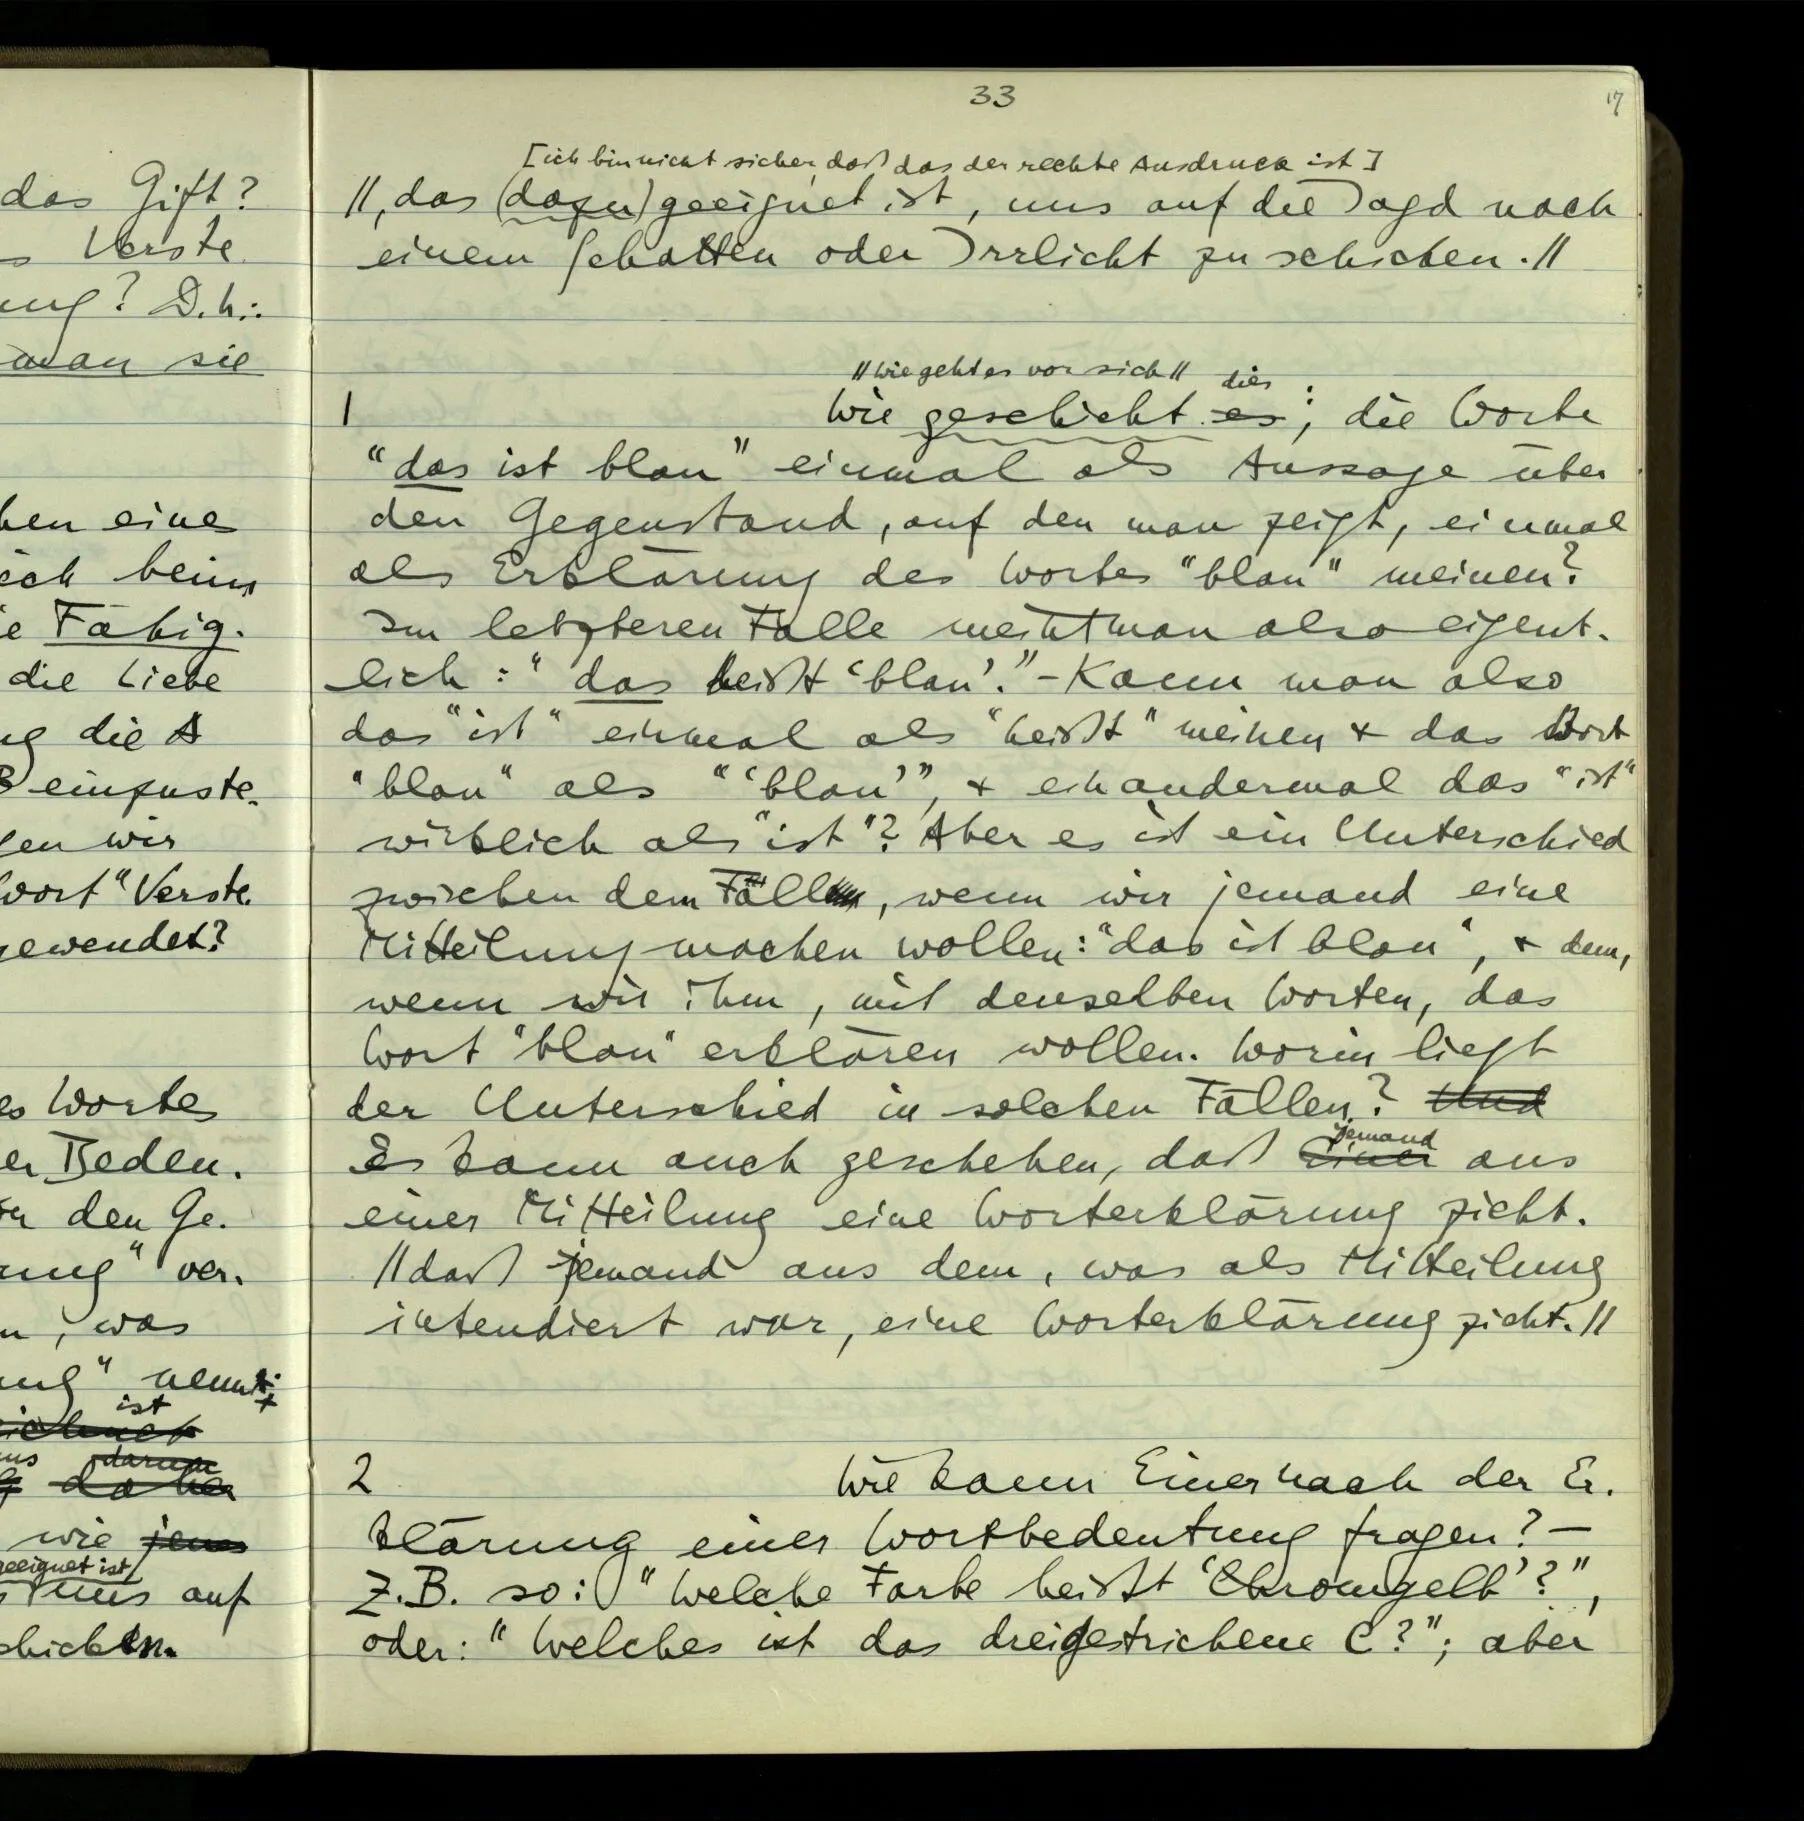 das Gift?
Verste
ung? D.h.:
man sie
hen eine
sich beim
ie Fähig-
die Liebe
ng die A
B einzuste-
gen wir
Wort "Verste-
gewendet?
es Wortes
er Bedeu-
den Ge-
ung" ver-
, was
ung" nennt
ist
darum
daher
wie jenes
geeignet ist
uns auf
schicken.
33
17
[ich bin nicht sicher, daß das der rechte Ausdruck ist]
//, das (dazu) geeignet ist, uns auf die Jagd nach
einem Schatten oder Irrlicht zu schicken.//
//wie geht es vor sich// dies
1 Wie geschieht es: die Worte
"das ist blau" einmal als Aussage über
den Gegenstand, auf den man zeigt, einmal
als Erklärung des Wortes "blau" meinen?
Im letzteren Falle meint man also eigent-
lich: "das heißt 'blau'." – Kann man also
das "ist" einmal als "heißt" meinen & das Wort
"blau" als "'blau'", & ein andermal das "ist"
wirklich als "ist"? Aber es ist ein Unterschied
zwischen dem Fall, wenn wir jemand eine
Mitteilung machen wollen: "das ist blau", & dem,
wenn wir ihm, mit denselben Worten, das
Wort "blau" erklären wollen. Worin liegt
der Unterschied in solchen Fällen? Und
jemand
Es kann auch geschehen, daß einer aus
einer Mitteilung eine Worterklärung zieht.
//daß jemand aus dem, was als Mitteilung
intendiert war, eine Worterklärung zieht.//
2 Wie kann Einer nach der Er-
klärung einer Wortbedeutung fragen? –
Z.B. so: "Welche Farbe heißt 'Chromgelb'?",
oder: "Welches ist das dreigestrichene C?"; aber